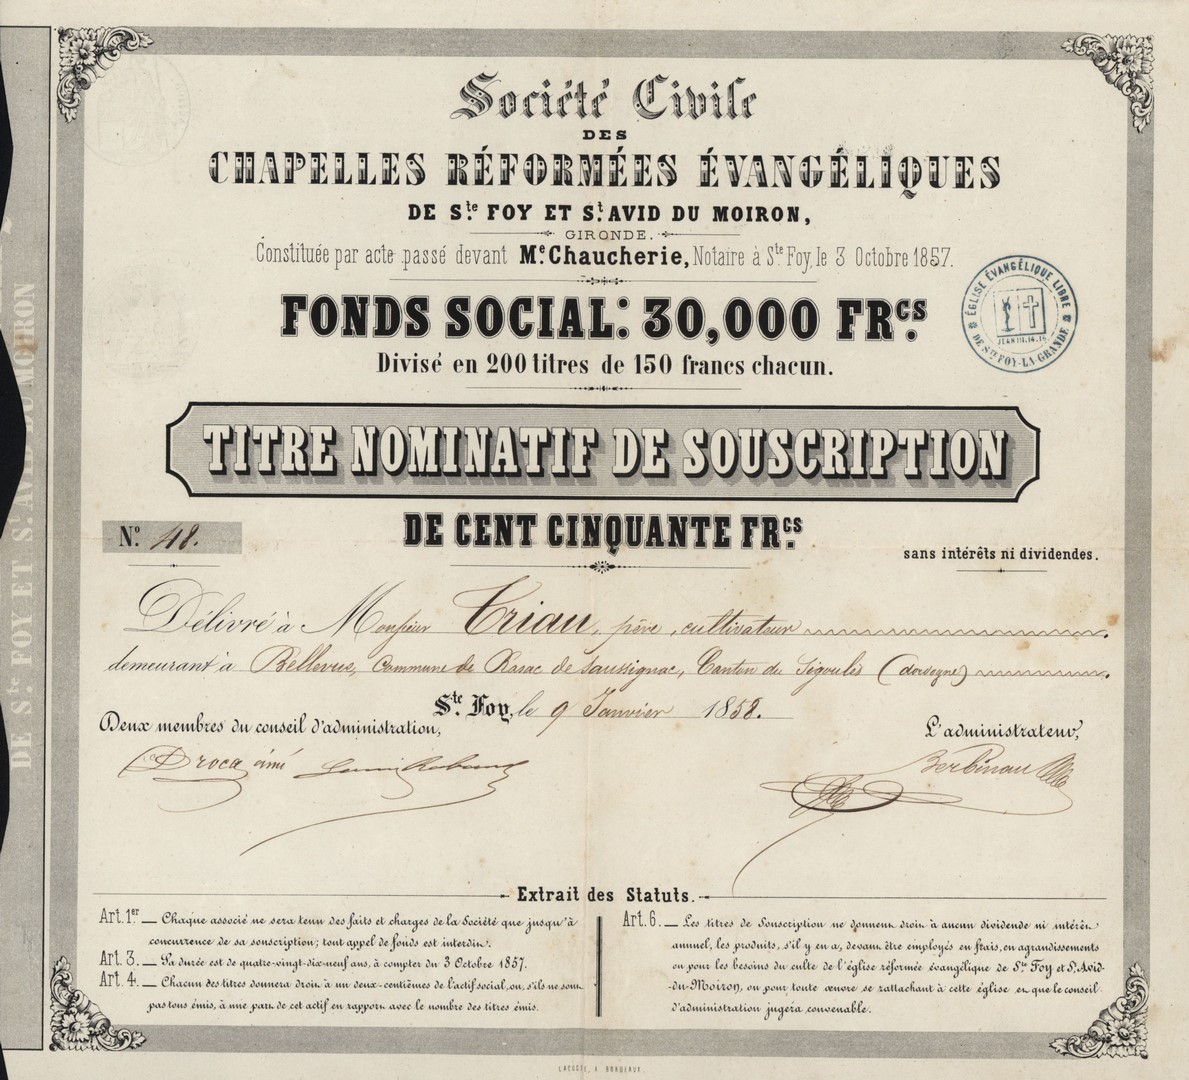 Société Civile
DES
CHAPELLES RÉFORMÉES ÉVANGÉLIQUES
DE Ste. FOY ET St. AVID DU MOIRON,
GIRONDE.
Constituée par acte passé devant Me. Chaucherie, Notaire à Ste Foy, le 3 Octobre 1857.
FONDS SOCIAL: 30,000 FRcs.
Divisé en 200 titres de 150 francs chacun.
ÉGLISE ÉVANGÉLIQUE LIBRE
DE Ste FOY-LA-GRANDE
JEAN III.14.16.
TITRE NOMINATIF DE SOUSCRIPTION
DE CENT CINQUANTE FRcs.
No. 48.
sans intérêts ni dividendes.
Délivré à Monsieur Triau, père, cultivateur
demeurant à Bellevue, Commune de Razac de Saussignac, Canton du Sigoulès (Dordogne)
Ste. Foy, le 9 Janvier 1858.
Deux membres du conseil d'administration,
L'administrateur,
Droca aîné
Berbineau
Extrait des Statuts.
Art. 1er — Chaque associé ne sera tenu des faits et charges de la Société que jusqu'à
concurrence de sa souscription; tout appel de fonds est interdit.
Art. 3. — Sa durée est de quatre-vingt-dix-neuf ans, à compter du 3 Octobre 1857.
Art. 4. — Chacun des titres donnera droit à un deux-centièmes de l'actif social, ou, s'ils ne sont
pas tous émis, à une part de cet actif en rapport avec le nombre des titres émis.
Art. 6. — Les titres de Souscription ne donnent droit à aucun dividende ni intérêt
annuel, les produits, s'il y en a, devant être employés en frais, en agrandissements
ou pour les besoins du culte de l'église réformée évangélique de Ste Foy et St. Avid-
-du-Moiron, ou pour toute œuvre se rattachant à cette église et que le conseil
d'administration jugera convenable.
LACOSTE, A BORDEAUX.
DE Ste. FOY ET St. AVID DU MOIRON